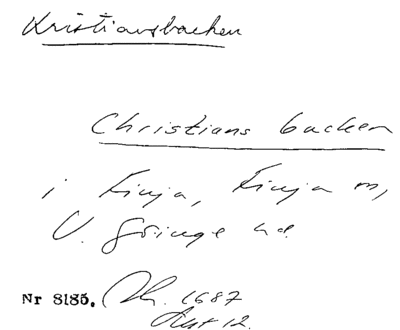 Kristiansbacken
Christians backen
i Finja, Finja sn,
V. Göinge hd.
Nr 8185. Lh. 1687
Avs 12.